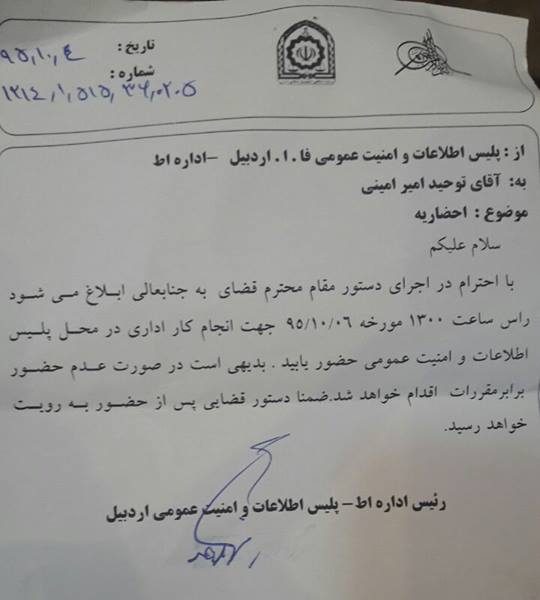 تاریخ : ۹۵,۱۰,۴
شماره : ۱۲۱۴,۱,۵۱۵,۳۶,۰۲۰۵
از : پلیس اطلاعات و امنیت عمومی فا . ا . اردبیل – اداره اط
به: آقای توحید امیر امینی
موضوع : احضاریه
سلام علیکم
با احترام در اجرای دستور مقام محترم قضای به جنابعالی ابلاغ می شود
راس ساعت ۱۳۰۰ مورخه ۹۵/۱۰/۰۶ جهت انجام کار اداری در محل پلیس
اطلاعات و امنیت عمومی حضور یابید . بدیهی است در صورت عدم حضور
برابرمقررات اقدام خواهد شد.ضمنا دستور قضایی پس از حضور به رویت
خواهد رسید.
رئیس اداره اط – پلیس اطلاعات و امنیت عمومی اردبیل